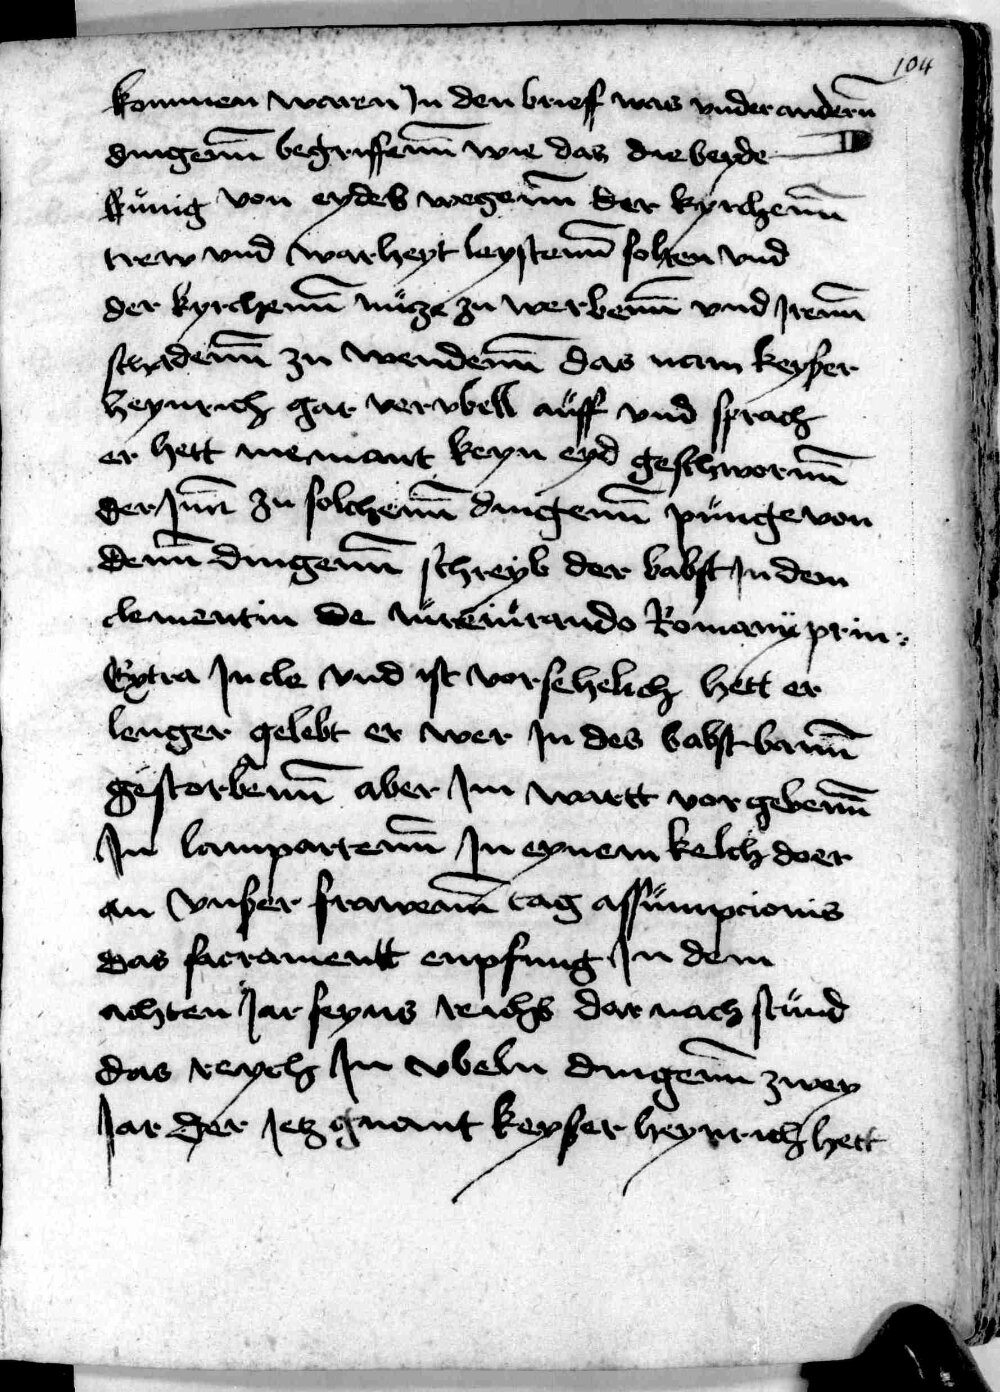 104
kommen waren In den brieff was vnder andern̄
dingenn̄ begriffenn̄ wie das die beyde
kűnig von eydes wegenn̄ der kyrchenn̄
trew vnd warheyt leystenn̄ solten vnd
der kyrchenn̄ nűcze zu werbenn̄ vnd Irenn̄
schadenn̄ zu wendenn̄ das nam keyser
heynrich gar vervbell aűff vnd sprach
er hett niemant keyn eyd geschwornn̄
der Inn̄ zu solchenn̄ dingenn̄ pűnge von
denn̄ dingenn̄ schreyb der babst In dem
clementin de iűreiűrando Romanÿ prin.
Extra Incle vnd ist vorsehelich hett er
lenger gelebt er wer In des babst bann̄
gestorbenn̄ aber Im wartt vorgebenn̄
In lampartenn̄ In eynem kelch do er
an Vnser frawenn̄ tag assűmpcionis
das sacramentt enpfing In dem
achten Jar seyns reichs dar nach stűnd
das reych In vbeln dingenn̄ zwey
Jar der Jetzgnant keyser heynrich hett